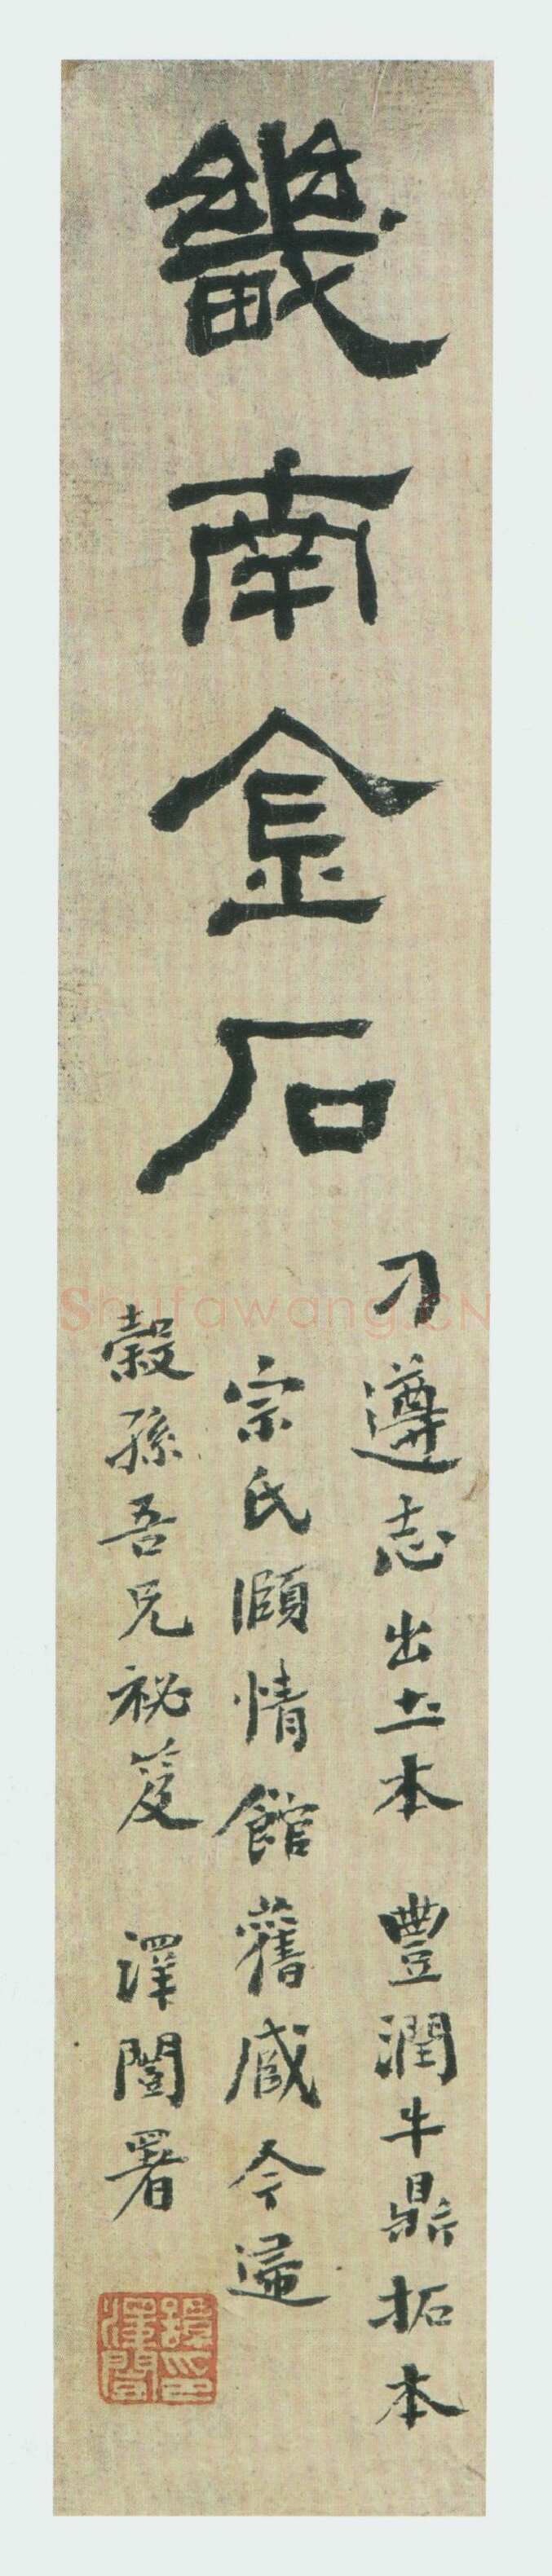 畿南金石
刁遵志出土本 豐潤牛鼎拓本
宗氏頤情館舊藏今歸
穀孫吾兄祕笈 澤闓署
譚澤闓印
Shufawang.CN